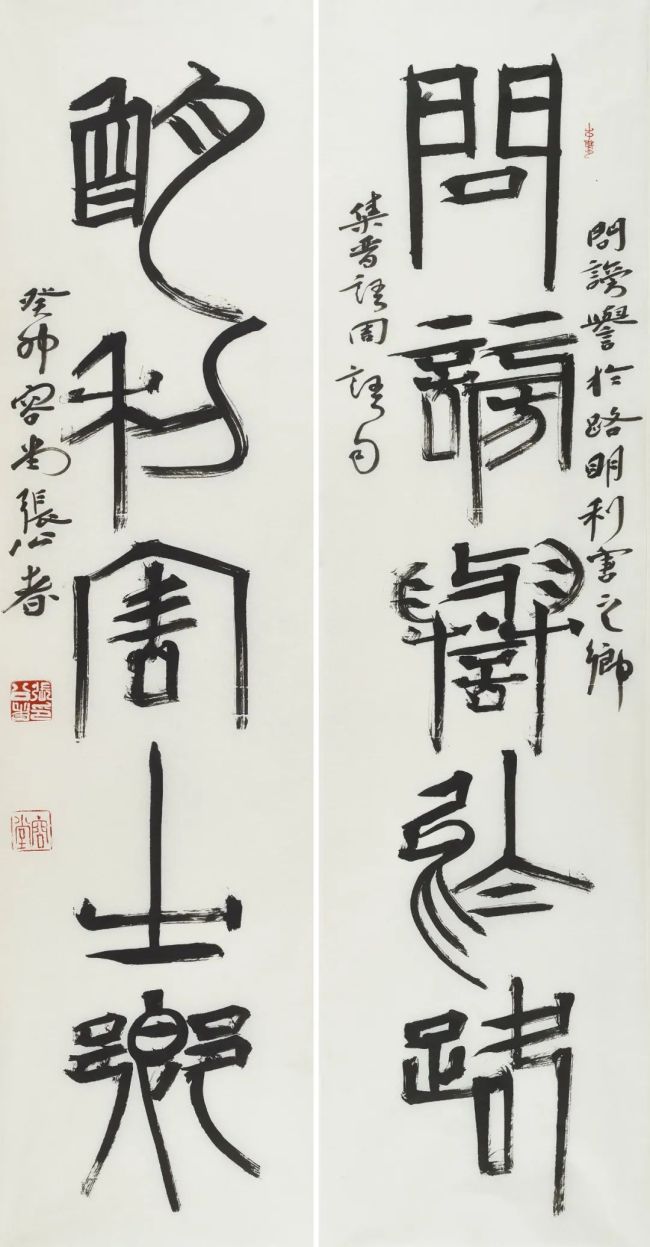 問謗譽於路明利害之鄉
問謗譽於路
集晋語周語句
明利害之鄉
癸卯容堂張公者
容堂